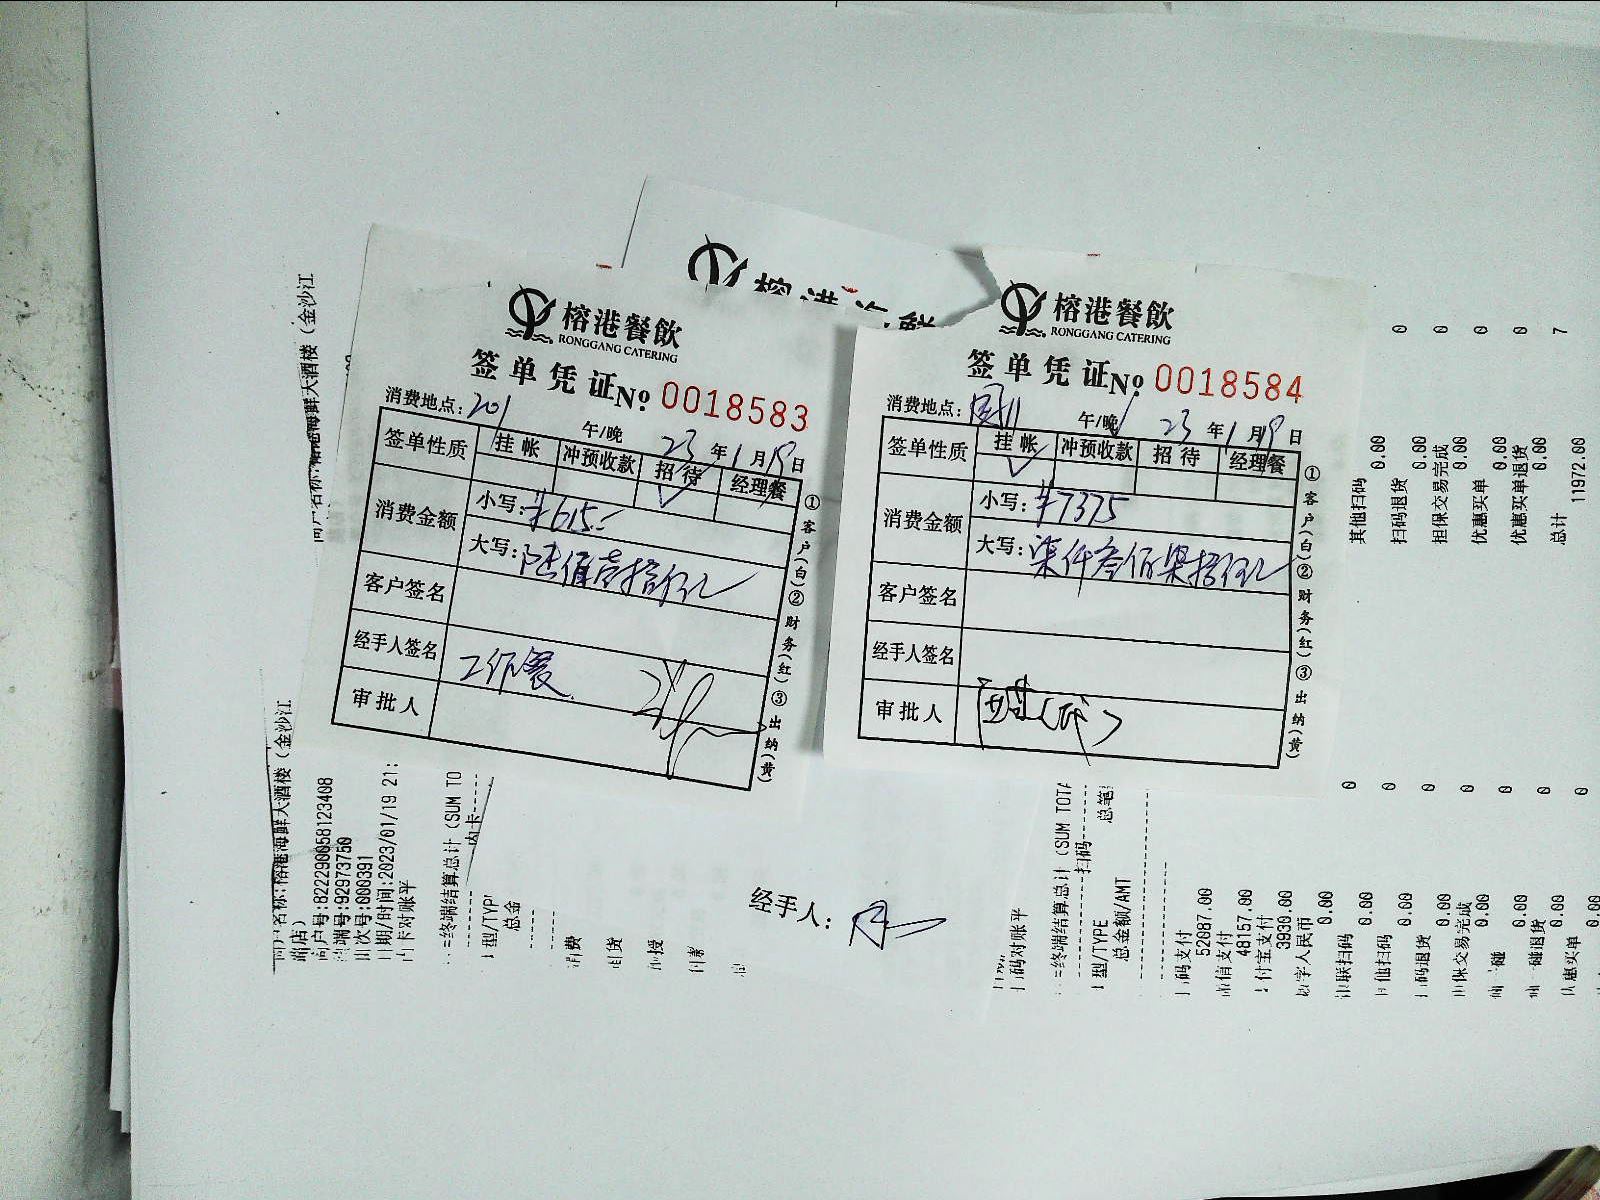 榕港海鲜
榕港餐飲
RONGGANG CATERING
签单凭证No. 0018583
消费地点: 201 午/晚 23年1月19日
签单性质 挂帐 冲预收款 招待 经理餐
✓
消费金额 小写: ¥615.-
大写: 陆佰壹拾伍元
客户签名
经手人签名 工作餐
审批人
①客户(白)②财务(红)③出纳(黄)
榕港餐飲
RONGGANG CATERING
签单凭证No. 0018584
消费地点: 午/晚 23年1月19日
签单性质 挂帐 冲预收款 招待 经理餐
✓
消费金额 小写: ¥7375
大写: 柒仟叁佰柒拾伍元
客户签名
经手人签名
审批人
①客户(白)②财务(红)③出纳(黄)
经手人:
海鲜大酒楼(金沙江
名称:榕港海鲜大酒楼(金沙江
店)
户号:822290058123408
端号:92973750
次号:000391
日期/时间:2023/01/19 21:
内卡对账平
终端结算总计(SUM TO
内卡
型/TYP
总金
消费
扫码对账平
终端结算总计(SUM TOTA
扫码
型/TYPE 总笔
总金额/AMT
扫码支付
52087.00
微信支付
48157.00 0
支付宝支付
3930.00 0
数字人民币
0.00 0
银联扫码
0.00 0
其他扫码
0.00 0
扫码退货
0.00 0
担保交易完成
0.00 0
0.00
0.00
优惠买单
0.00
其他扫码
0.00 0
扫码退货
0.00 0
担保交易完成
0.00 0
优惠买单
0.00 0
优惠买单退货
0.00
总计 7
11972.00